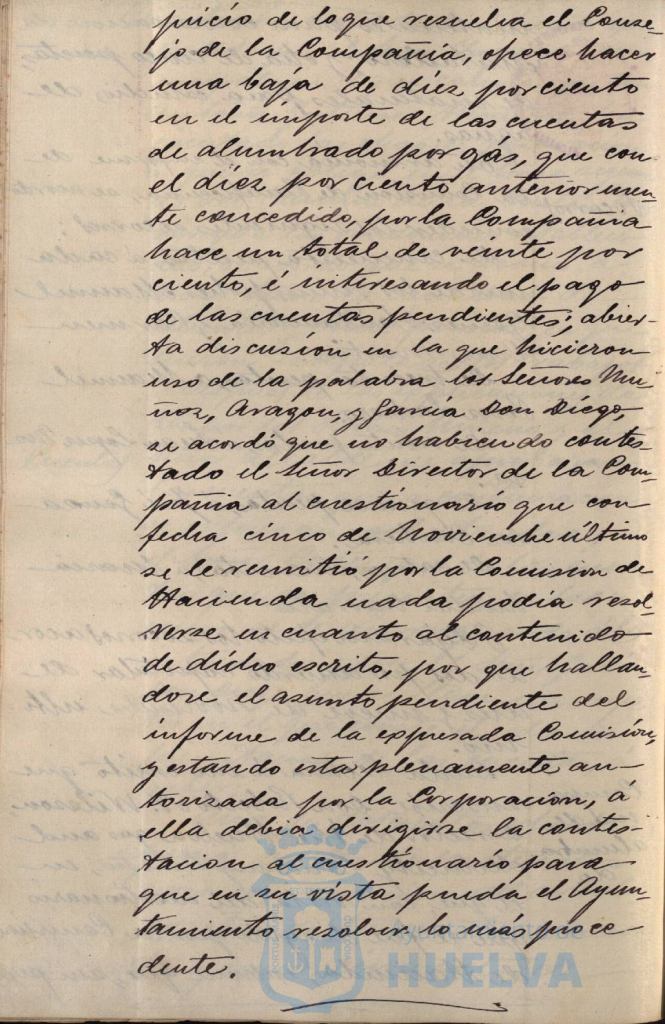 juicio de lo que resuelva el Conse-
jo de la Compañia, ofrece hacer
una baja de diez por ciento
en el importe de las cuentas
de alumbrado por gás, que con
el diez por ciento anteriormen-
te concedido, por la Compañia
hace un total de veinte por
ciento, é interesando el pago
de las cuentas pendientes; abier-
ta discusion en la que hicieron
uso de la palabra los Señores Mu-
ñoz, Aragon, y Garcia Don Diego,
se acordó que no habiendo contes-
tado el Señor Director de la Com-
pañia al cuestionario que con
fecha cinco de Noviembre último
se le remitió por la Comision de
Hacienda nada podia resol-
verse en cuanto al contenido
de dicho escrito, por que hallan-
dose el asunto pendiente del
informe de la expresada Comisión,
y estando esta plenamente au-
torizada por la Corporación, á
ella debia dirigirse la contes-
tacion al cuestionario para
que en su vista pueda el Ayun-
tamiento resolver lo más proce-
dente.
HUELVA